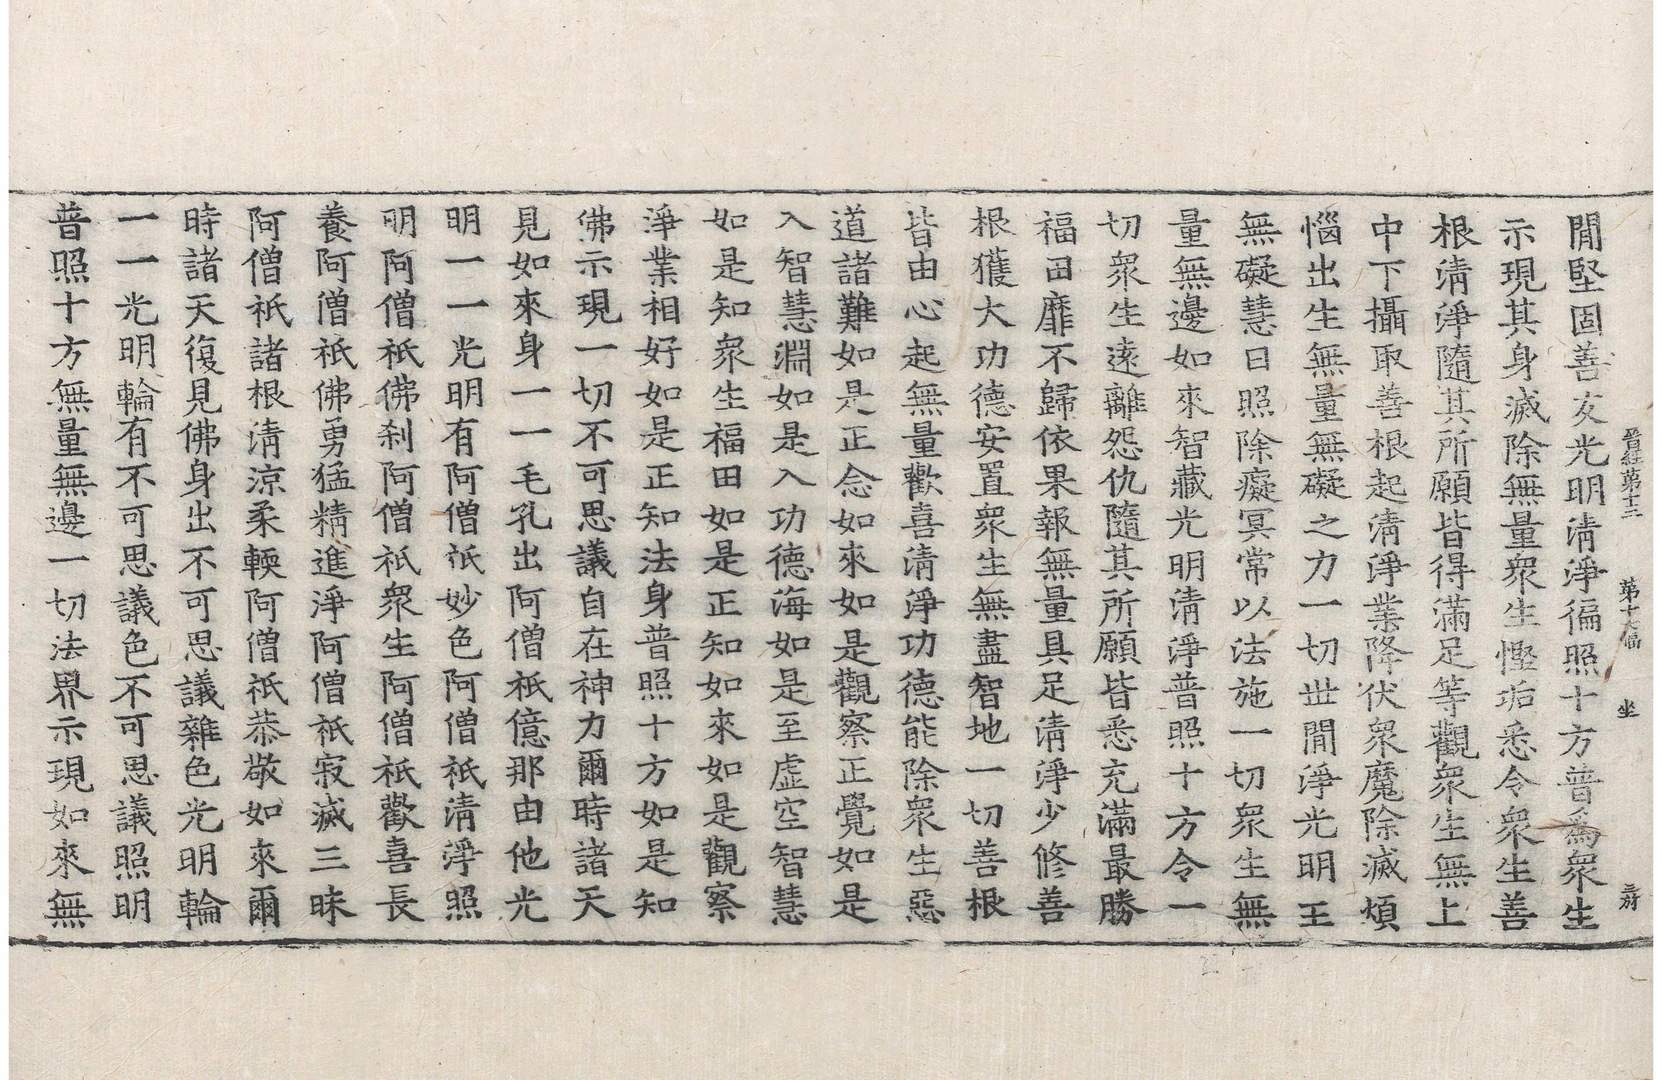 晉經第十三 第十六幅 坐
閒堅固善友光明清淨徧照十方普爲衆生
示現其身滅除無量衆生慳垢悉令衆生善
根清淨隨其所願皆得滿足等觀衆生無上
中下攝取善根起清淨業降伏衆魔除滅煩
惱出生無量無礙之力一切世間淨光明王
無礙慧日照除癡冥常以法施一切衆生無
量無邊如來智藏光明清淨普照十方令一
切衆生遠離怨仇隨其所願皆悉充滿最勝
福田靡不歸依果報無量具足清淨少修善
根獲大功德安置衆生無盡智地一切善根
皆由心起無量歡喜清淨功德能除衆生惡
道諸難如是正念如來如是觀察正覺如是
入智慧淵如是入功德海如是至虛空智慧
如是知衆生福田如是正知如來如是觀察
淨業相好如是正知法身普照十方如是知
佛示現一切不可思議自在神力爾時諸天
見如來身一一毛孔出阿僧祇億那由他光
明一一光明有阿僧祇妙色阿僧祇清淨照
明阿僧祇佛刹阿僧祇衆生阿僧祇歡喜長
養阿僧祇佛勇猛精進淨阿僧祇寂滅三昧
阿僧祇諸根清涼柔輭阿僧祇恭敬如來爾
時諸天復見佛身出不可思議雜色光明輪
一一光明輪有不可思議色不可思議照明
普照十方無量無邊一切法界示現如來無